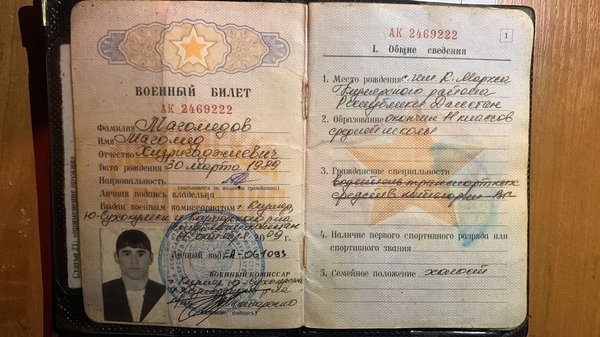 Статья 21. «Применение оружия»
ВОЕННЫЙ БИЛЕТ
АК 2469222
Фамилия Магомедов
Имя Магомед
Отчество
Дата рождения 30 марта 1989
Национальность
Личная подпись владельца
Выдан военным комиссариатом г. Кизляр,
Ю-Сухокумск и Кизлярского р-на
Республики Дагестан
октября 2009 г.
Личный код ЕА-061093
ВОЕННЫЙ КОМИССАР
АК 2469222
1
I. Общие сведения
1. Место рождения с. им. К. Маркса
Кизлярского района
Республики Дагестан
2. Образование окончил 11 классов
средней школы
3. Гражданские специальности
водитель транспортных
средств категории
4. Наличие первого спортивного разряда или
спортивного звания
5. Семейное положение холост